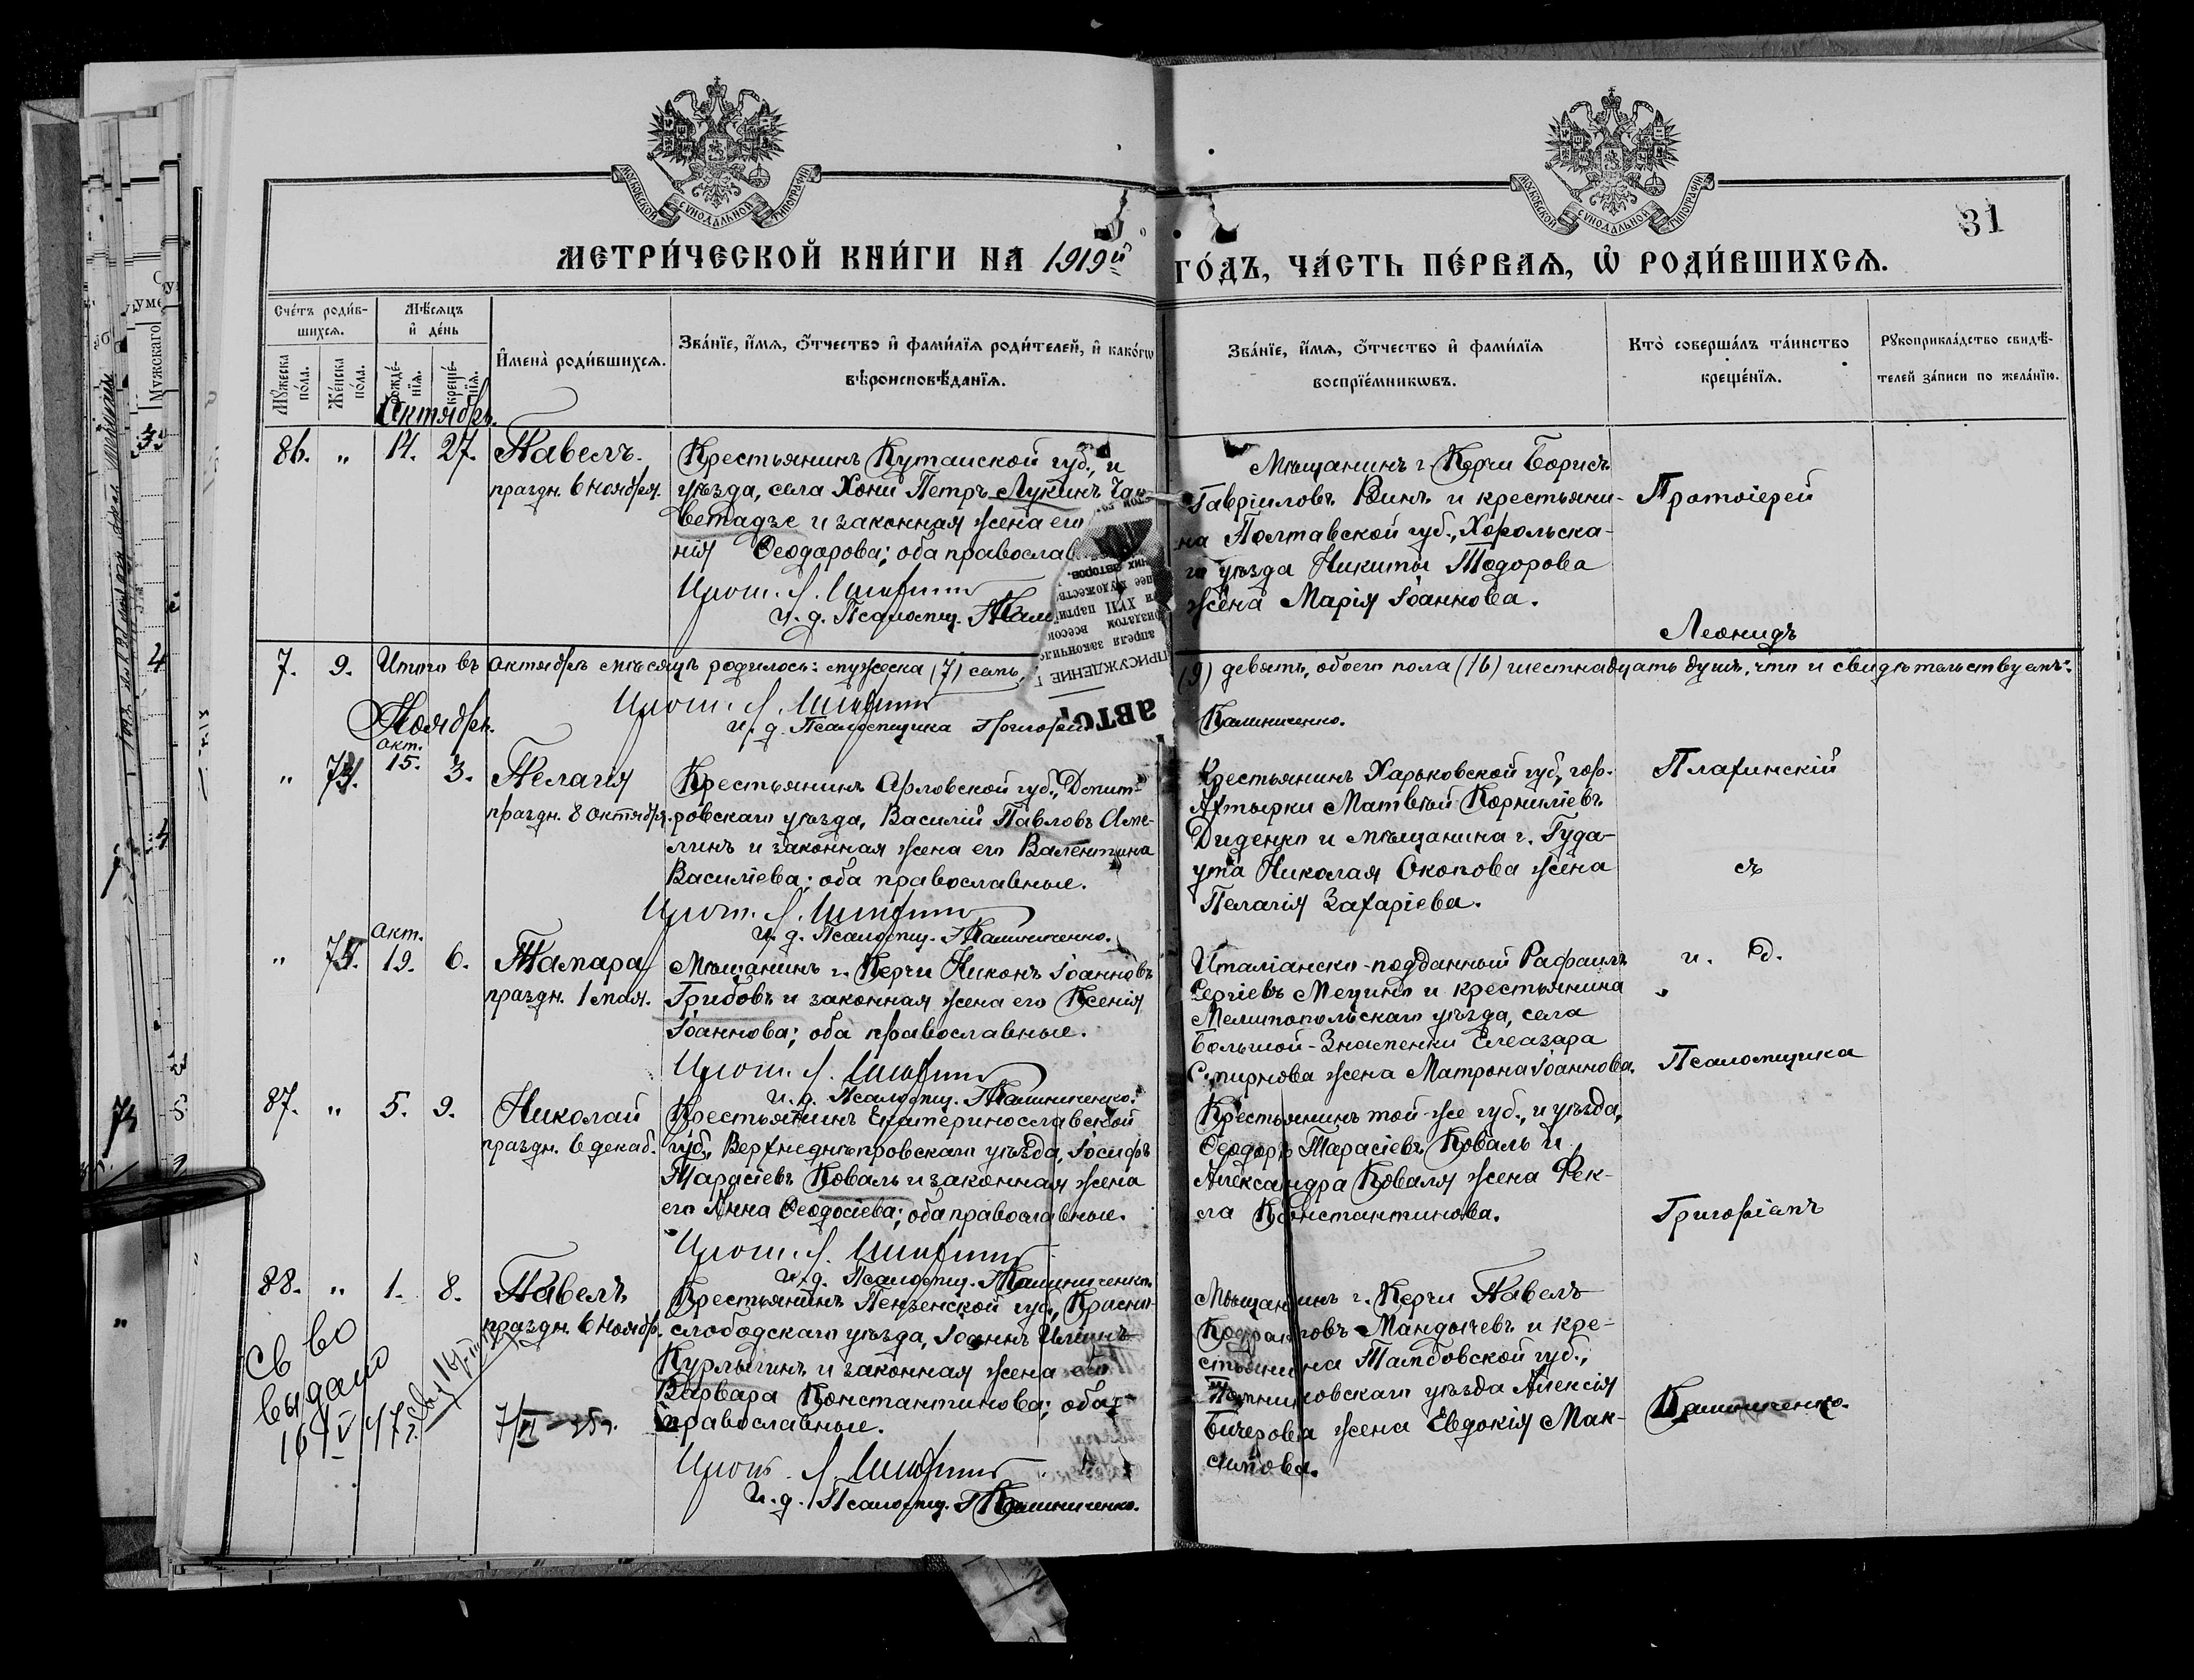 МОСКОВСКОЙ СѴНОДАЛЬНОЙ ТИПОГРАФІИ
МОСКОВСКОЙ СѴНОДАЛЬНОЙ ТИПОГРАФІИ
31
МЕТРИ́ЧЕСКОЙ КНИ́ГИ НА 1919й ГО́ДЪ, ЧА́СТЬ ПЕ́РВАѦ, Ѡ҆ РОДИ́ВШИХСѦ.
Сче́тъ роди́в-
шихсѧ.
Мꙋ́жеска по́ла.
Же́нска по́ла.
Мѣ́сѧцъ
и҆ де́нь
рожде́-
нїѧ.
креще́-
нїѧ.
И҆мена̀ роди́вшихсѧ.
Зва́нїе, и҆́мѧ, ѻ҆́тчество и҆ фами́лїѧ роди́телей, и҆ како́гѡ
вѣроисповѣ́данїѧ.
Зва́нїе, и҆́мѧ, ѻ҆́тчество и҆ фами́лїѧ
воспрїе́мникѡвъ.
Кто̀ соверша́лъ та́инство
креще́нїѧ.
Рꙋкоприкла́дство свидѣ́-
телей за́писи по жела́нїю.
Октябрь.
86. " 14. 27. Павелъ.
праздн. 6 ноября.
Крестьянинъ Кутаиской губ., и
уѣзда, села Хони Петръ Лукинъ Чак-
ветадзе и законная жена его
нія Ѳеодорова; оба православ
Прот. Л.
и. д. Псаломщ.
Мѣщанинъ г. Керчи Борисъ
Гавріиловъ Винъ и крестьяни-
на Полтавской губ., Хорольска-
го уѣзда Никиты Тодорова
жена Марія Іоаннова.
Протоіерей
Леонидъ
7. 9. Итого въ октябрѣ мѣсяцѣ родилось: мужеска (7) семь,
(9) девять, обоего пола (16) шестнадцать душъ, что и свидѣтельствуемъ:
Прот. Л.
и. д. Псаломщика Григорій
Калиниченко.
авто
ПРИСУЖДЕНИЕ
апреля закончился
Ноябрь.
окт.
" 15. 3. Пелагія
праздн. 8 октября.
Крестьянинъ Орловской губ., Дмит-
ровскаго уѣзда, Василій Павловъ Аме-
линъ и законная жена его Валентина
Василіева; оба православные.
Прот. Л.
и. д. Псаломщ. Г Калиниченко.
Крестьянинъ Харьковской губ., гор.
Ахтырки Матвѣй Корниліевъ
Диденко и мѣщанина г. Гуда-
ута Николая Окопова жена
Пелагія Захаріева.
Плахинскій
съ
окт.
" 19. 6. Тамара
праздн. 1 мая.
Мѣщанинъ г. Керчи Никонъ Іоанновъ
Грибовъ и законная жена его Ксенія
Іоаннова; оба православные.
Прот. Л.
и. д. Псаломщ. Г Калиниченко.
Италіанско-подданный Рафаилъ
Сергіевъ Мецино и крестьянина
Мелитопольскаго уѣзда, села
Большой-Знаменки Елеазара
Смирнова жена Матрона Іоаннова.
и. д.
Псаломщика
87. " 5. 9. Николай
праздн. 6 декаб.
Крестьянинъ Екатеринославской
губ., Верхнеднѣпровскаго уѣзда, Іосифъ
Тарасіевъ Коваль и законная жена
его Анна Ѳеодосіева; оба православные.
Прот. Л.
и. д. Псаломщ. Г Калиниченко.
Крестьянинъ той-же губ., и уѣзда,
Ѳеодоръ Тарасіевъ Коваль и
Александра Коваля жена Фек-
ла Константинова.
Григоріемъ
88. " 1. 8. Павелъ
праздн. 6 ноябр.
Крестьянинъ Пензенской губ., Красно-
слободскаго уѣзда, Іоаннъ Ильинъ
Курлыгинъ и законная жена его
Варвара Константинова; оба-
православные.
Прот. Л.
и. д. Псаломщ. Г Калиниченко.
Мѣщанинъ г. Керчи Павелъ
Кодратовъ Мандычевъ и кре-
стьянина Тамбовской губ.,
Темниковскаго уѣзда Алексія
Бичерова жена Евдокія Мак-
симова.
Калиниченко.
Св во
выдано
16/IV 47г.
7/VI-25г.